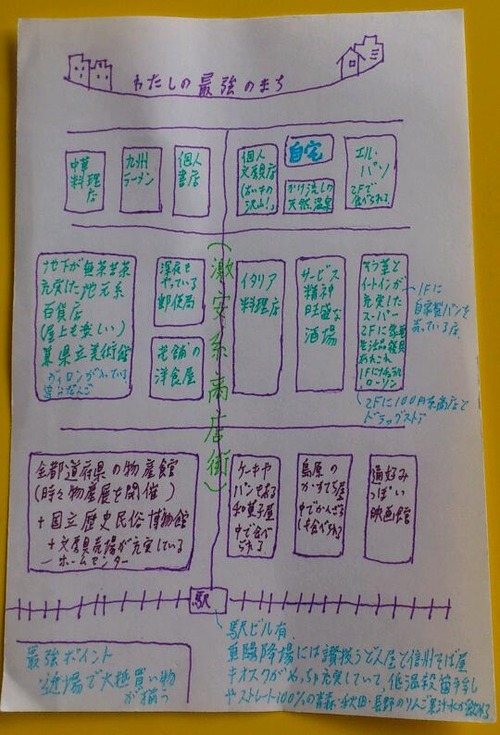 わたしの最強のまち
中華
料理
店
九州
ラーメン
個人
書店
個人
文房具店
自宅
かけ流しの
天然温泉
エル・
パソ
2Fで
食べられる
地下が無茶苦茶
充実した地元系
百貨店
(屋上も楽しい)
兼県立美術館
深夜も
やっている
郵便局
老舗の
洋食屋
(激安系商店街)
イタリア
料理店
サービス
精神
旺盛な
酒場
イートインが
充実した
スーパー
2Fに
生活品寝具
あれこれ
1Fにナチュラル
ローソン
1Fに
自家製パンを
売っている店
2Fに100円系商店と
ドラッグストア
全都道府県の物産館
(時々物産展を開催)
+国立歴史民俗博物館
+文房具売場が充実している
ホームセンター
ケーキや
パンも売る
和菓子屋
中で食べ
られる
鳥屋の
通好み
っぽい
映画館
駅
駅ビル有
乗降場には讃岐うどん屋と信州そば屋
キオスクがめっちゃ充実していて、低温殺菌牛乳
やストレート100%の青森・秋田・長野のりんご果汁水が
最強ポイント
近場で大抵買い物
が揃う